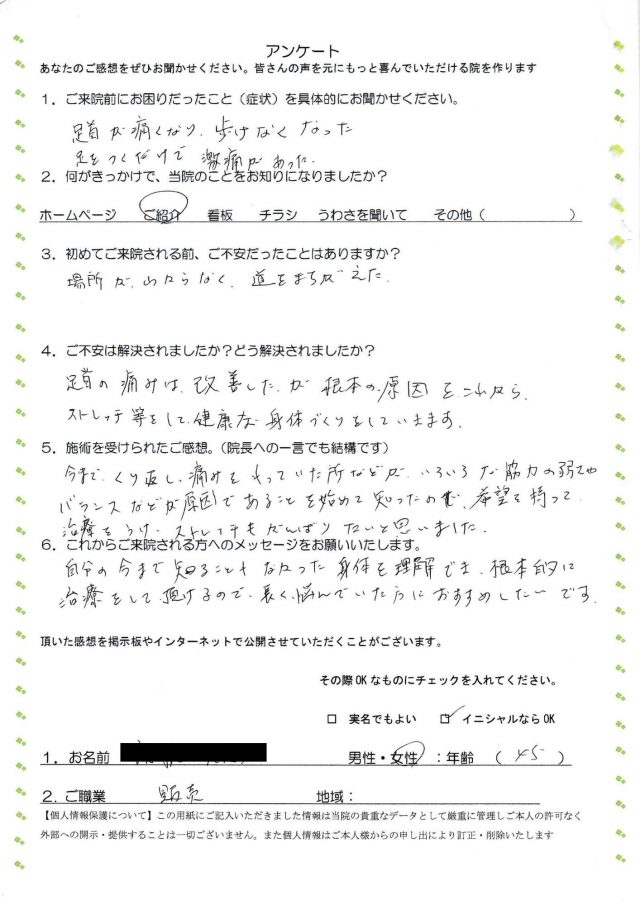 アンケート
あなたのご感想をぜひお聞かせください。皆さんの声を元にもっと喜んでいただける院を作ります
1．ご来院前にお困りだったこと（症状）を具体的にお聞かせください。
足首が痛くなり、歩けなくなった
足をつくだけで 激痛があった.
2．何がきっかけで、当院のことをお知りになりましたか？
ホームページ ご紹介 看板 チラシ うわさを聞いて その他（ ）
3．初めてご来院される前、ご不安だったことはありますか？
場所が、わからなく、道をまちがえた.
4．ご不安は解決されましたか？どう解決されましたか？
足首の痛みは、改善したが 根本の原因をこれから、
ストレッチ等をして、健康な身体づくりをしていきます.
5．施術を受けられたご感想。（院長への一言でも結構です）
今まで、くり返し、痛みをもっていた所などが、いろいろな筋力の弱さや
バランスなどが原因であることを始めて知ったので、希望を持って、
治療をうけ、ストレッチもがんばりたいと思いました.
6．これからご来院される方へのメッセージをお願いいたします。
自分の今まで知ることもなかった身体を理解でき、根本的に
治療をして頂けるので、長く悩んでいた方におすすめしたいです.
頂いた感想を掲示板やインターネットで公開させていただくことがございます。
その際OKなものにチェックを入れてください。
□ 実名でもよい ☑ イニシャルならOK
1．お名前 男性・女性 ：年齢 （45）
2．ご職業 販売 地域：
【個人情報保護について】この用紙にご記入いただきました情報は当院の貴重なデータとして厳重に管理しご本人の許可なく
外部への開示・提供することは一切ございません。また個人情報はご本人様からの申し出により訂正・削除いたします